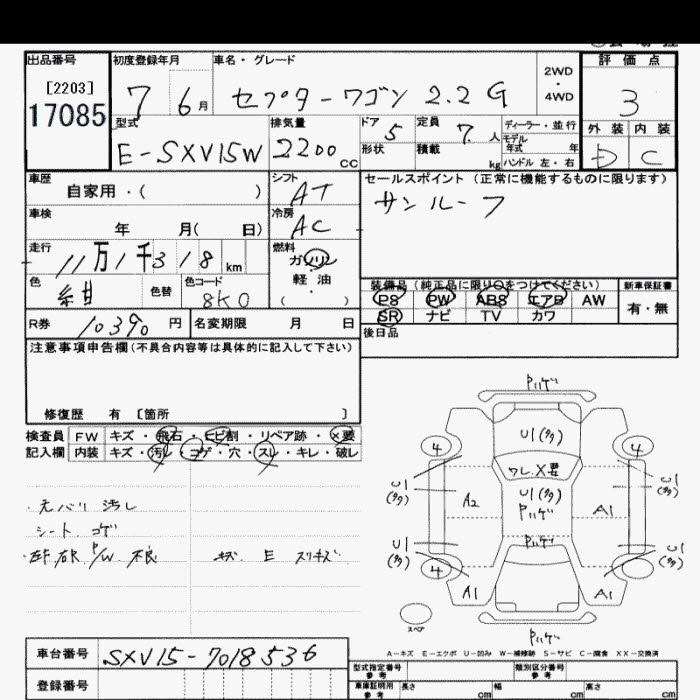 出品番号 初度登録年月 車名・グレード 評価点
[2203] 2WD
17085 7 6月 セプターワゴン 2.2 G ・ 3
4WD
型式 排気量 ドア 5 定員 7.人 ディーラー・並行 外装 内装
E-SXV15W 2200cc 形状 積載 kg モデル年式 年 D C
ハンドル 左・右
車歴 シフト セールスポイント (正常に機能するものに限ります)
自家用・( ) AT サンルーフ
車検 冷房
年 月( 日) AC
走行 燃料
11万1千318km ガソリン
色 色替 色コード 軽油
紺 8K0 (・)
装備品(純正品に限り○をつけてください) 新車保証書
PS PW ABS エアB AW 有・無
SR ナビ TV カワ
R券 10390円 名変期限 月 日 後日品
注意事項申告欄(不具合内容等は具体的に記入して下さい)
修復歴 有 〔箇所 〕
検査員 FW キズ・飛石・ヒビ割・リペア跡・×要
記入欄 内装 キズ・汚レ・コゲ・穴・スレ・キレ・破レ
汚レ
シート コゲ
P/W 不良 キズ E スリキズ
ハゲ
U1(多)
4 4
ワレ.X要
U1(多) U1(多) U1(多)
A2 ハゲ A1
ハゲ
U1(多) U1(多)
4 4
A1 A1
スペア
ハゲ
A-キズ E-エクボ U-凹み W-補修跡 S-サビ C-腐食 XX-交換済
車台番号 SXV15-7018536
登録番号
型式指定番号 参考 類別区分番号 参考
車庫証明用 参考 長さ cm 幅 cm 高さ cm